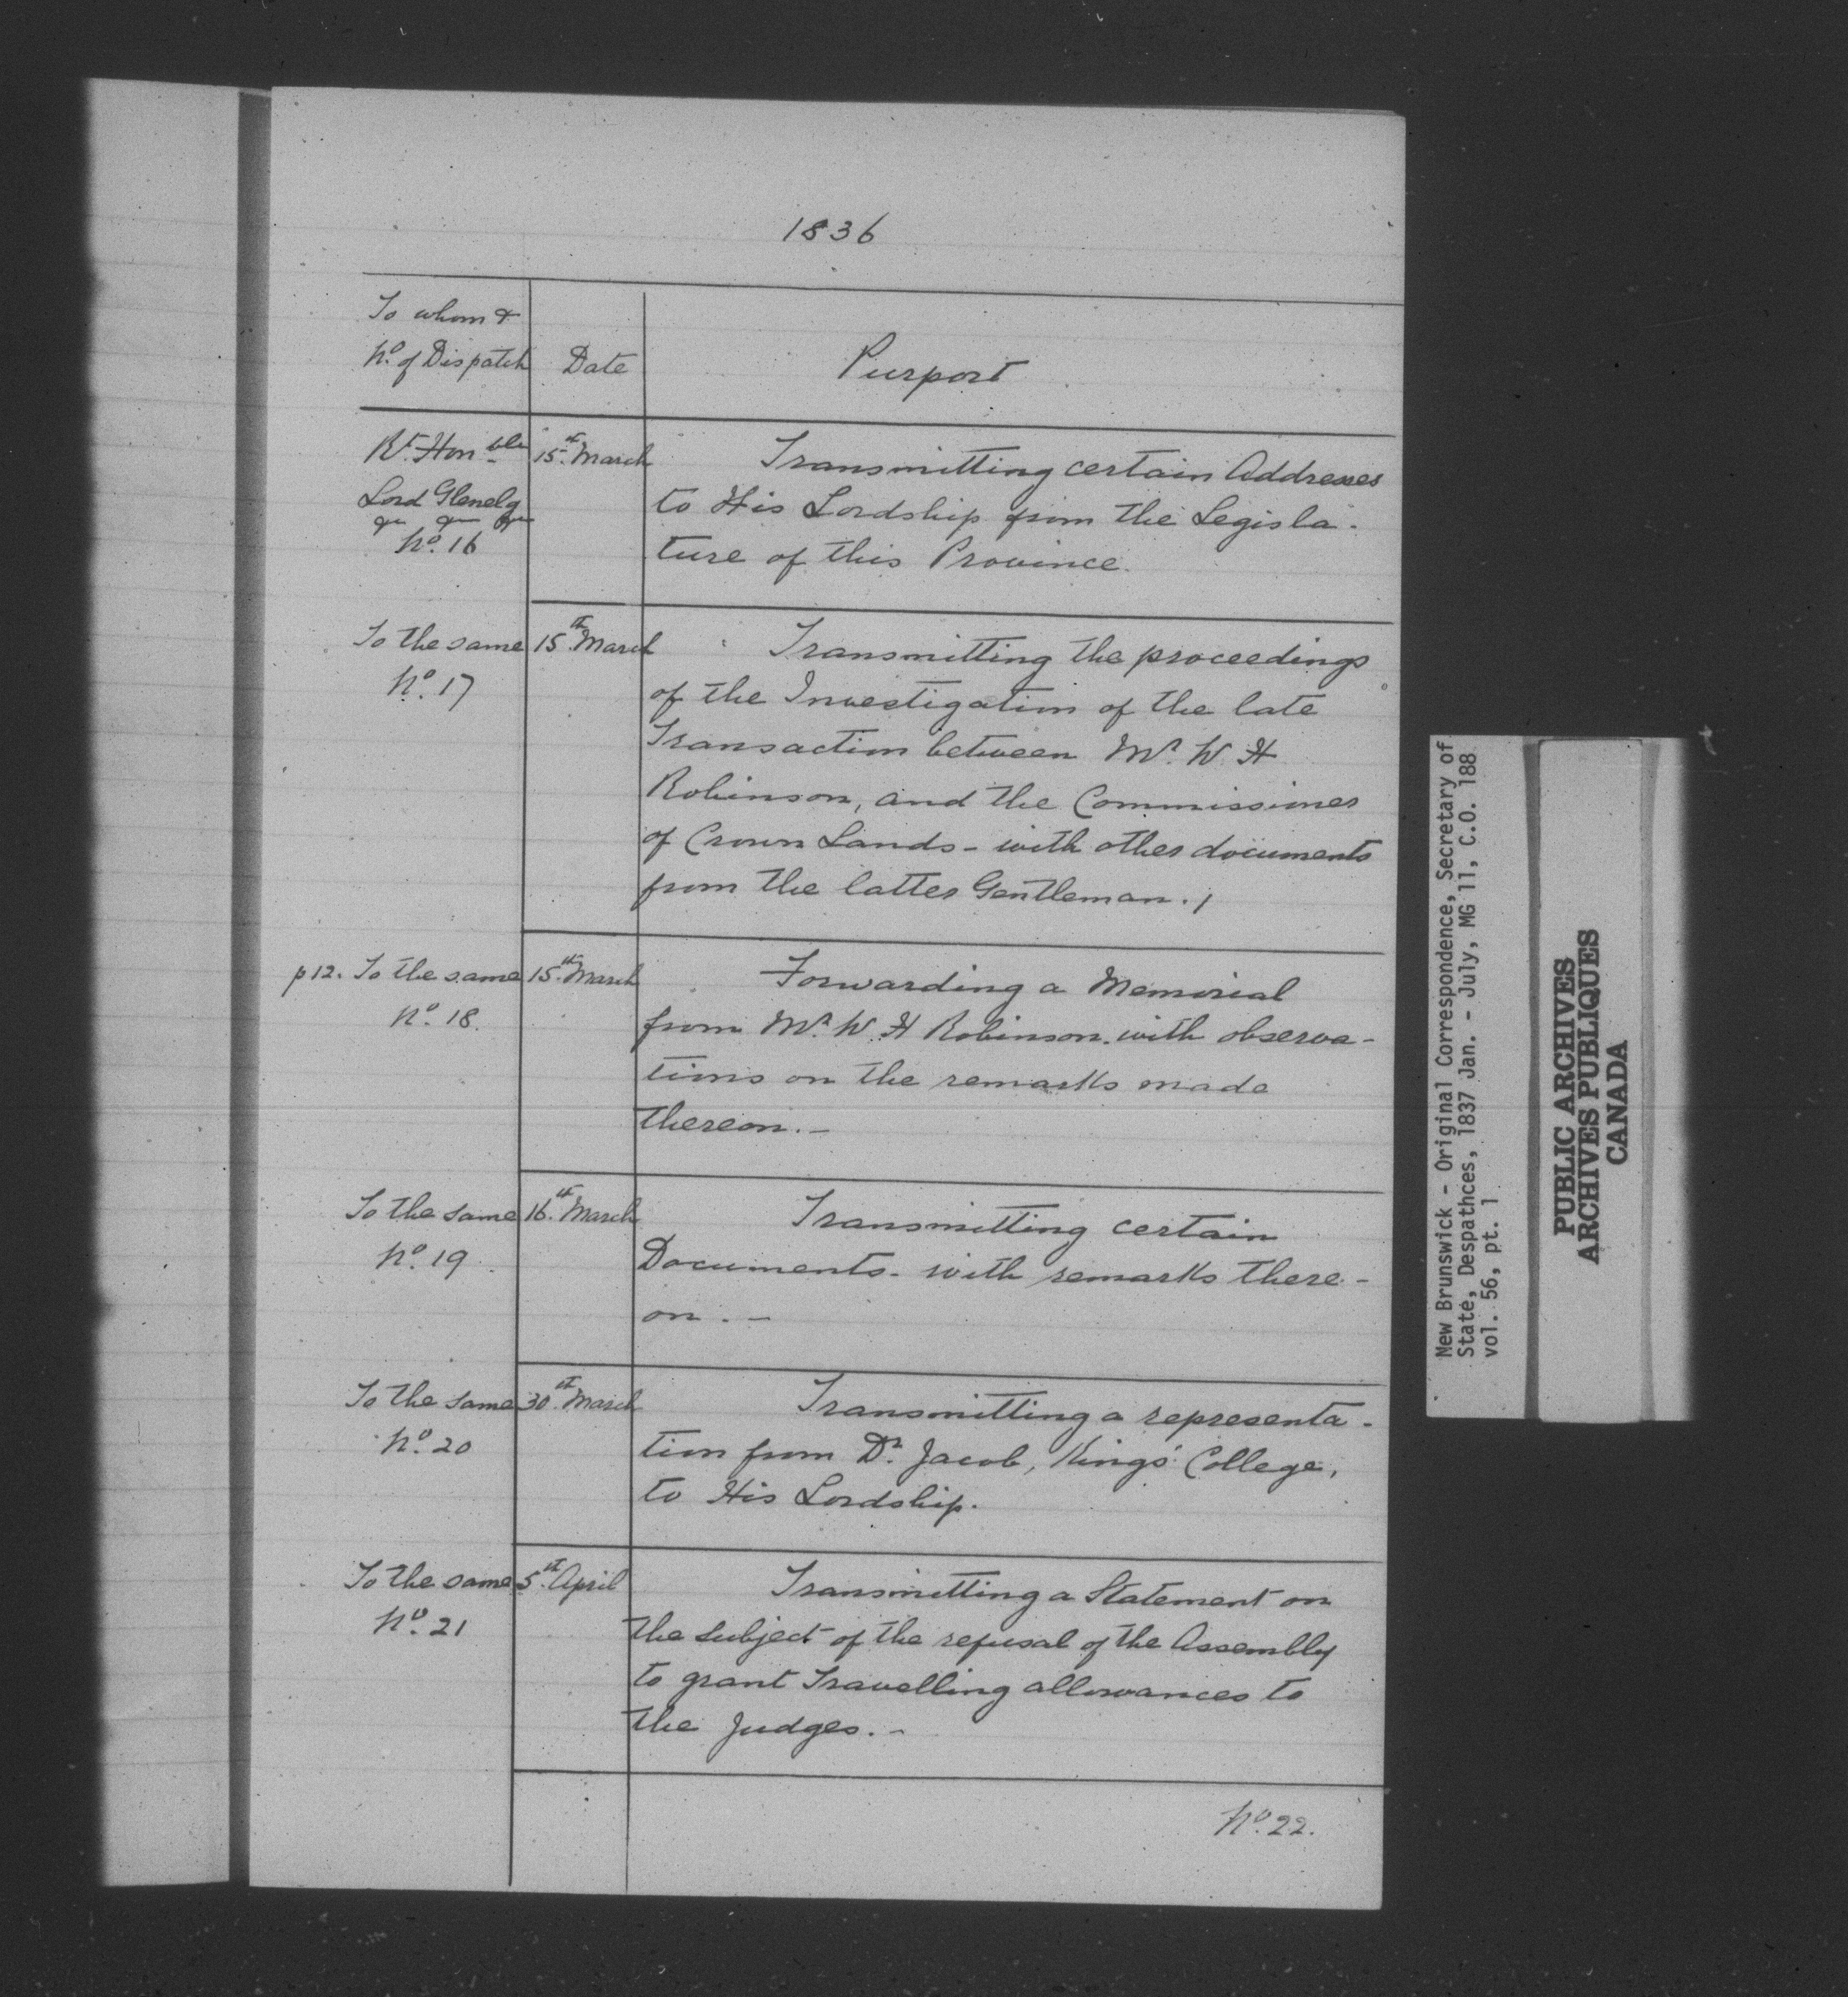 1836
To whom &
No. of Dispatch Date Purport
Rt. Honble 15th March Transmitting certain Addresses
Lord Glenelg to His Lordship from the Legisla-
No. 16 ture of this Province.
To the same 15th March Transmitting the proceedings
No. 17 of the Investigation of the late
Transaction between Mr. W. H
Robinson, and the Commissioner
of Crown Lands - with other documents
from the latter Gentleman. /
p 12. To the same 15th March Forwarding a Memorial
No. 18. from Mr. W. H Robinson. with observa-
tions on the remarks made
thereon. -
To the same 16th March Transmitting certain
No. 19 Documents - with remarks there-
on. -
To the same 30th March Transmitting a representa-
No. 20 tion from Dr. Jacob, Kings' College,
to His Lordship.
To the same 5th April Transmitting a Statement on
No. 21 the subject of the refusal of the Assembly
to grant Travelling allowances to
the Judges. -
No. 22.
New Brunswick - Original Correspondence, Secretary of
State, Despathces, 1837 Jan. - July, MG 11, C.O. 188
vol. 56, pt. 1
PUBLIC ARCHIVES
ARCHIVES PUBLIQUES
CANADA